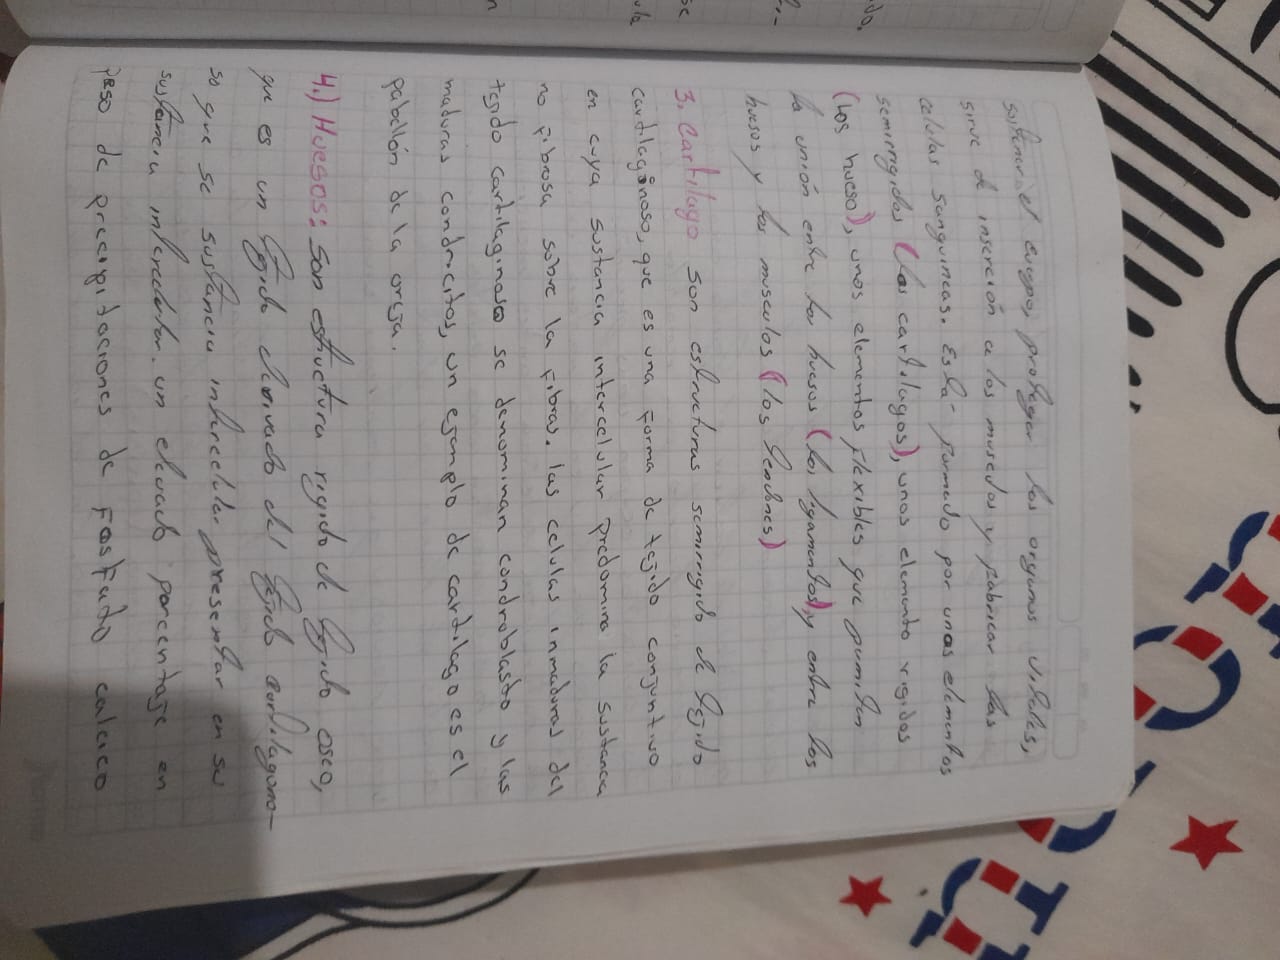 sostener el cuerpo, proteger los organos vitales,
sirve de inserción a los musculos y fabricar las
celulas sanguineas. Esta formado por unos elementos
semirrigidos (los cartilagos), unos elemento rigidos
(los hueso), unos elementos flexibles que permiten
la unión entre los huesos (los ligamentos) y entre los
huesos y los musculos (los tendones)
3. Cartilago son estructuras semirrigido de tejido
cartilaginoso, que es una forma de tejido conjuntivo
en cuya sustancia intercelular predomina la sustancia
no fibrosa sobre la fibras. las celulas inmaduras del
tejido cartilaginoso se denominan condroblasto y las
maduras condrocitos, un ejemplo de cartilago es el
pabellón de la oreja.
4.) Huesos: Son estructura rigido de tejido oseo,
que es un tejido derivado del tejido cartilagino-
so que se sustancia intercelular presentar en su
sustancia intercelular. un elevado porcentaje en
peso de precipitaciones de Fosfato calcico
ndo,
se
ula
n